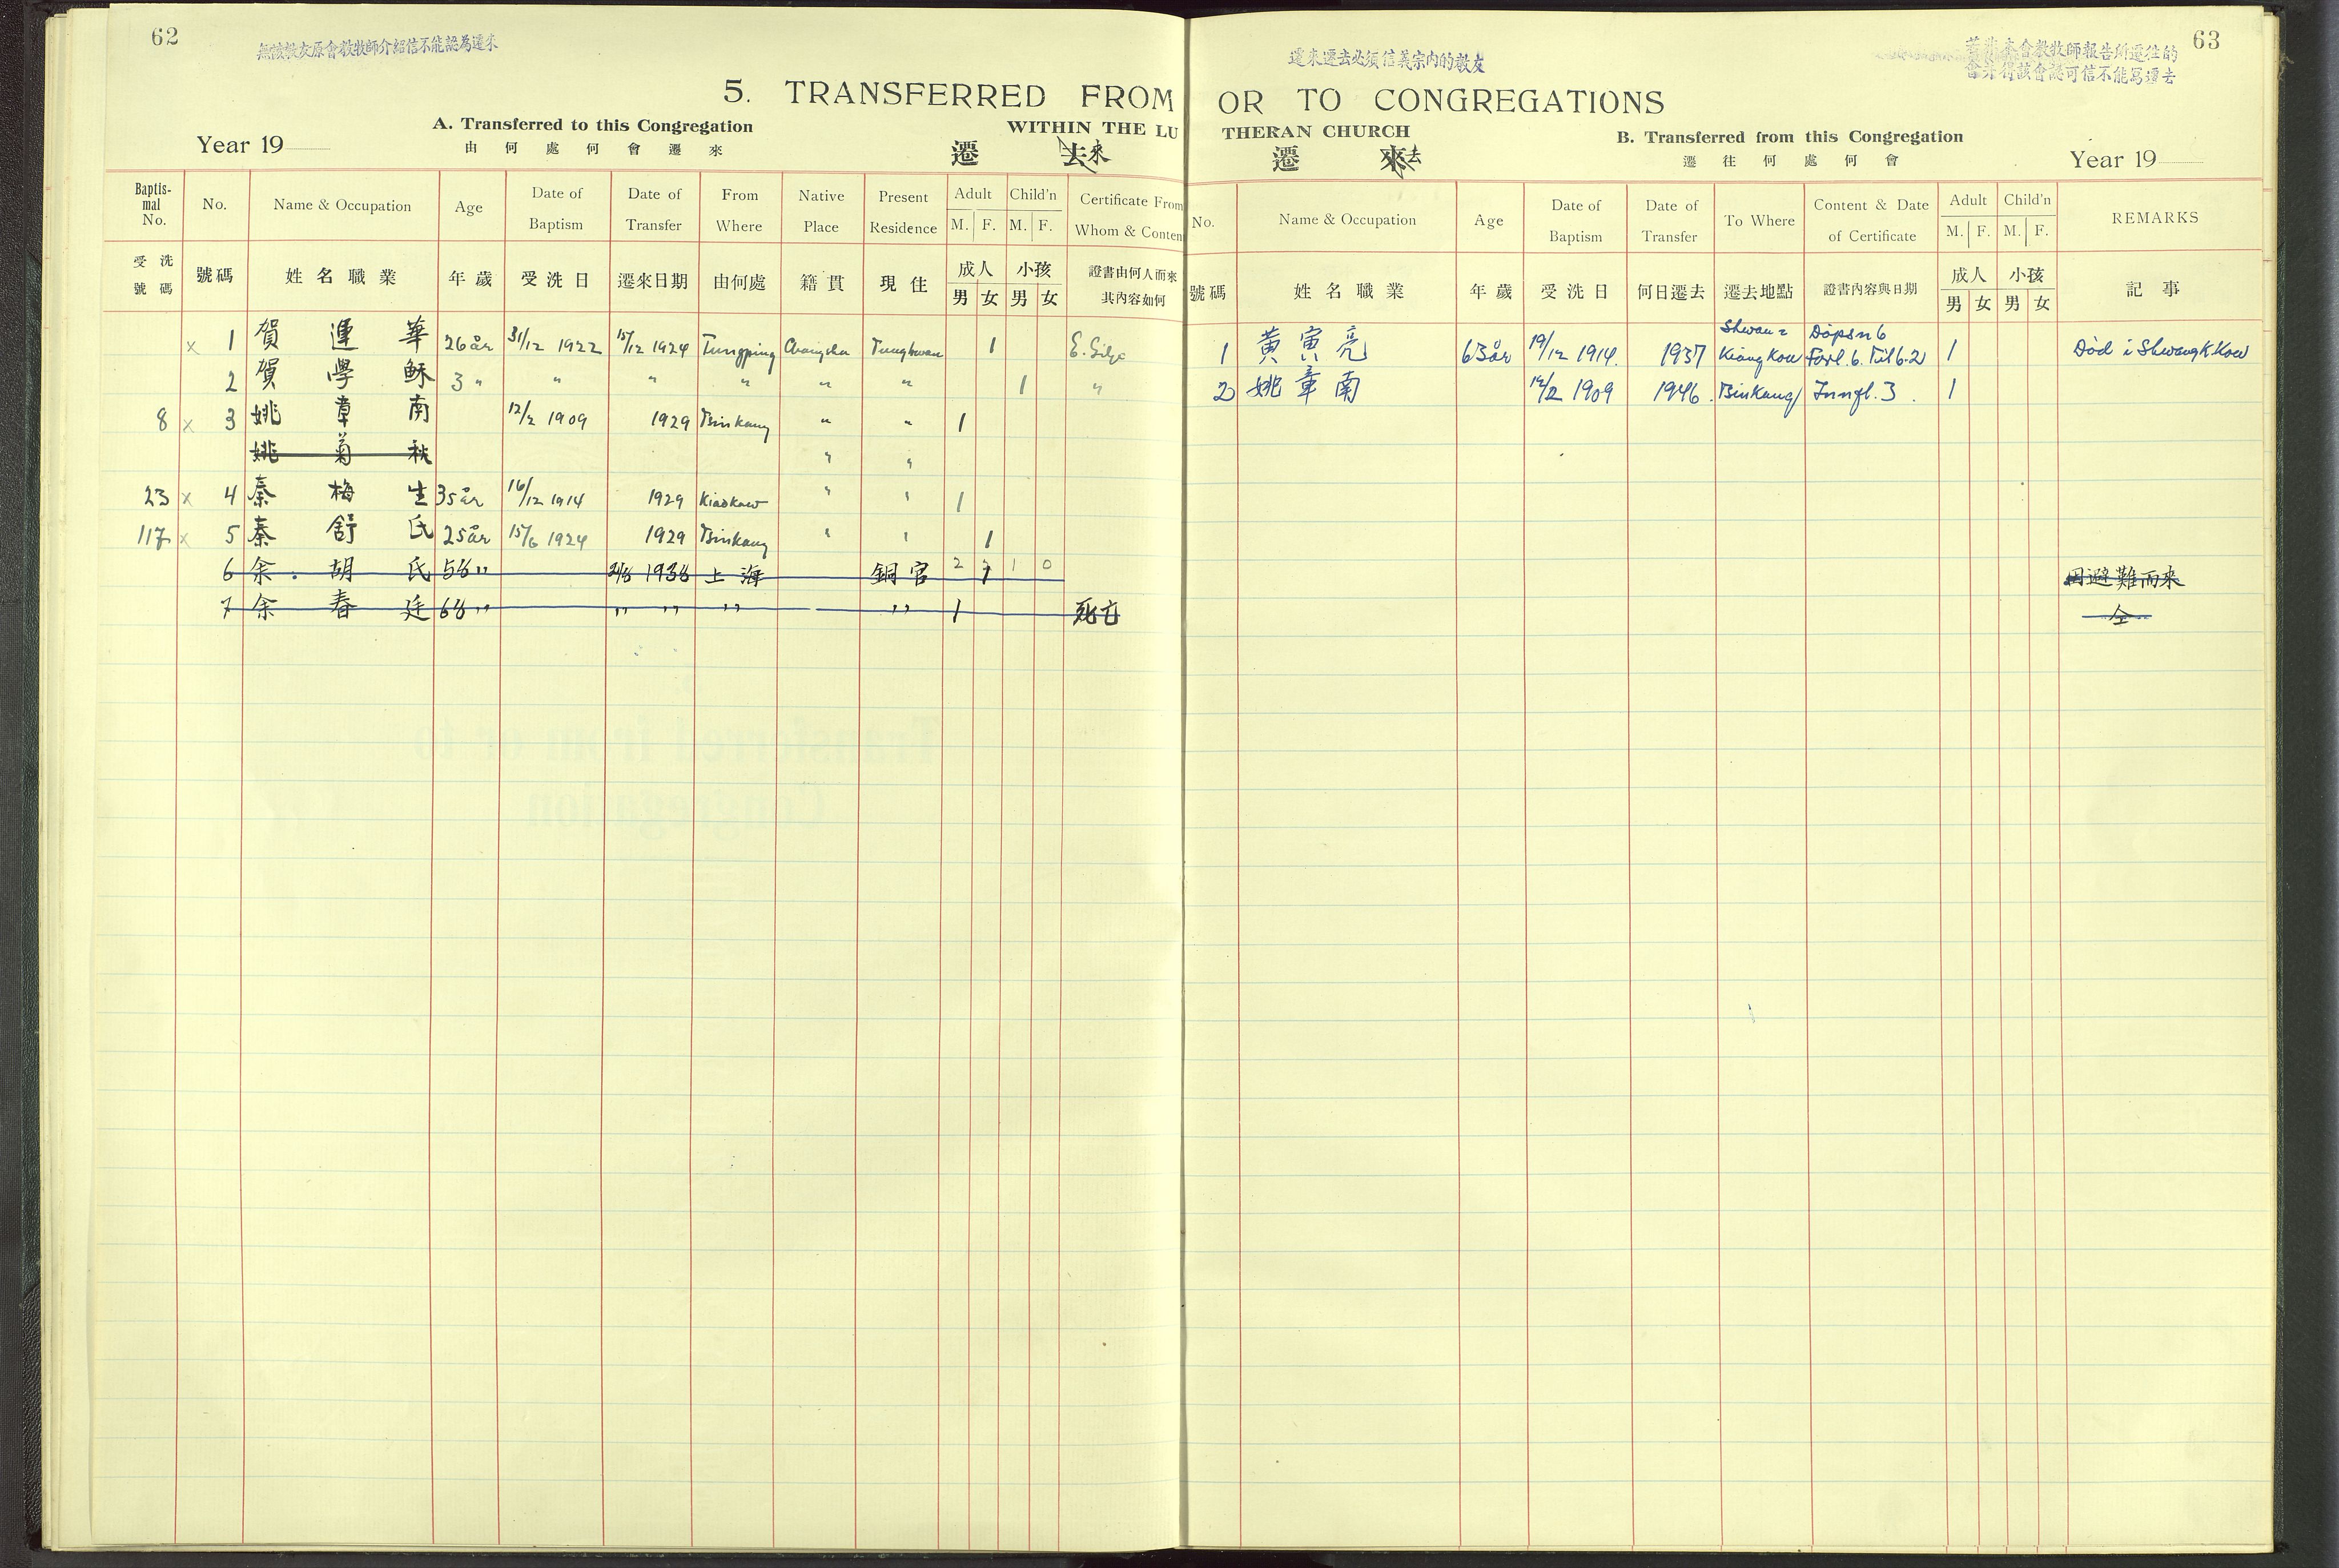 62
無該敎友原會敎牧師介紹信不能認為遷來
5. TRANSFERRED FROM
A. Transferred to this Congregation
WITHIN THE LU
Year 19
由何處何會遷來
遷 去來
Baptismal No. No. Name & Occupation Age Date of Baptism Date of Transfer From Where Native Place Present Residence Adult M. F. Child'n M. F. Certificate From Whom & Conten
受洗號碼 號碼 姓名職業 年歲 受洗日 遷來日期 由何處 籍貫 現住 成人 男 女 小孩 男 女 證書由何人而來其內容如何
x 1 賀運華 26 år 31/12 1922 15/12 1924 Tungping Changsha Tungkwan 1
2 賀學穌 3 " " " " " " 1 "
8 x 3 姚章南 12/2 1909 1929 Tsinkang " " 1
姚菊秋 " "
23 x 4 秦梅生 35 år 16/12 1914 1929 Kiaokow " " 1
117 x 5 秦舒氏 25 år 15/6 1924 1929 Tsinkang " " 1
6 余胡氏 58 " 1938 上海 銅官 2 1 1 0
7 余春廷 68 " " " " " 1 死亡
63
遷來遷去必須信義宗内的敎友
本會敎牧師報告所遷往的
會并得該會認可信不能寫遷去
OR TO CONGREGATIONS
THERAN CHURCH
B. Transferred from this Congregation
遷 來去
遷往何處何會
Year 19
No. Name & Occupation Age Date of Baptism Date of Transfer To Where Content & Date of Certificate Adult M. F. Child'n M. F. REMARKS
號碼 姓名職業 年歲 受洗日 何日遷去 遷去地點 證書內容與日期 成人 男 女 小孩 男 女 記事
1 黃寅亮 63 år 19/12 1914. 1937 Shwang Kiang Kow Dåpsn 6 Forl. 6. Til 6.2 1 Död i Shwang K Kow
2 姚章南 12/2 1909 1946. Tsinkang Inngl. 3. 1
因避難而來
仝